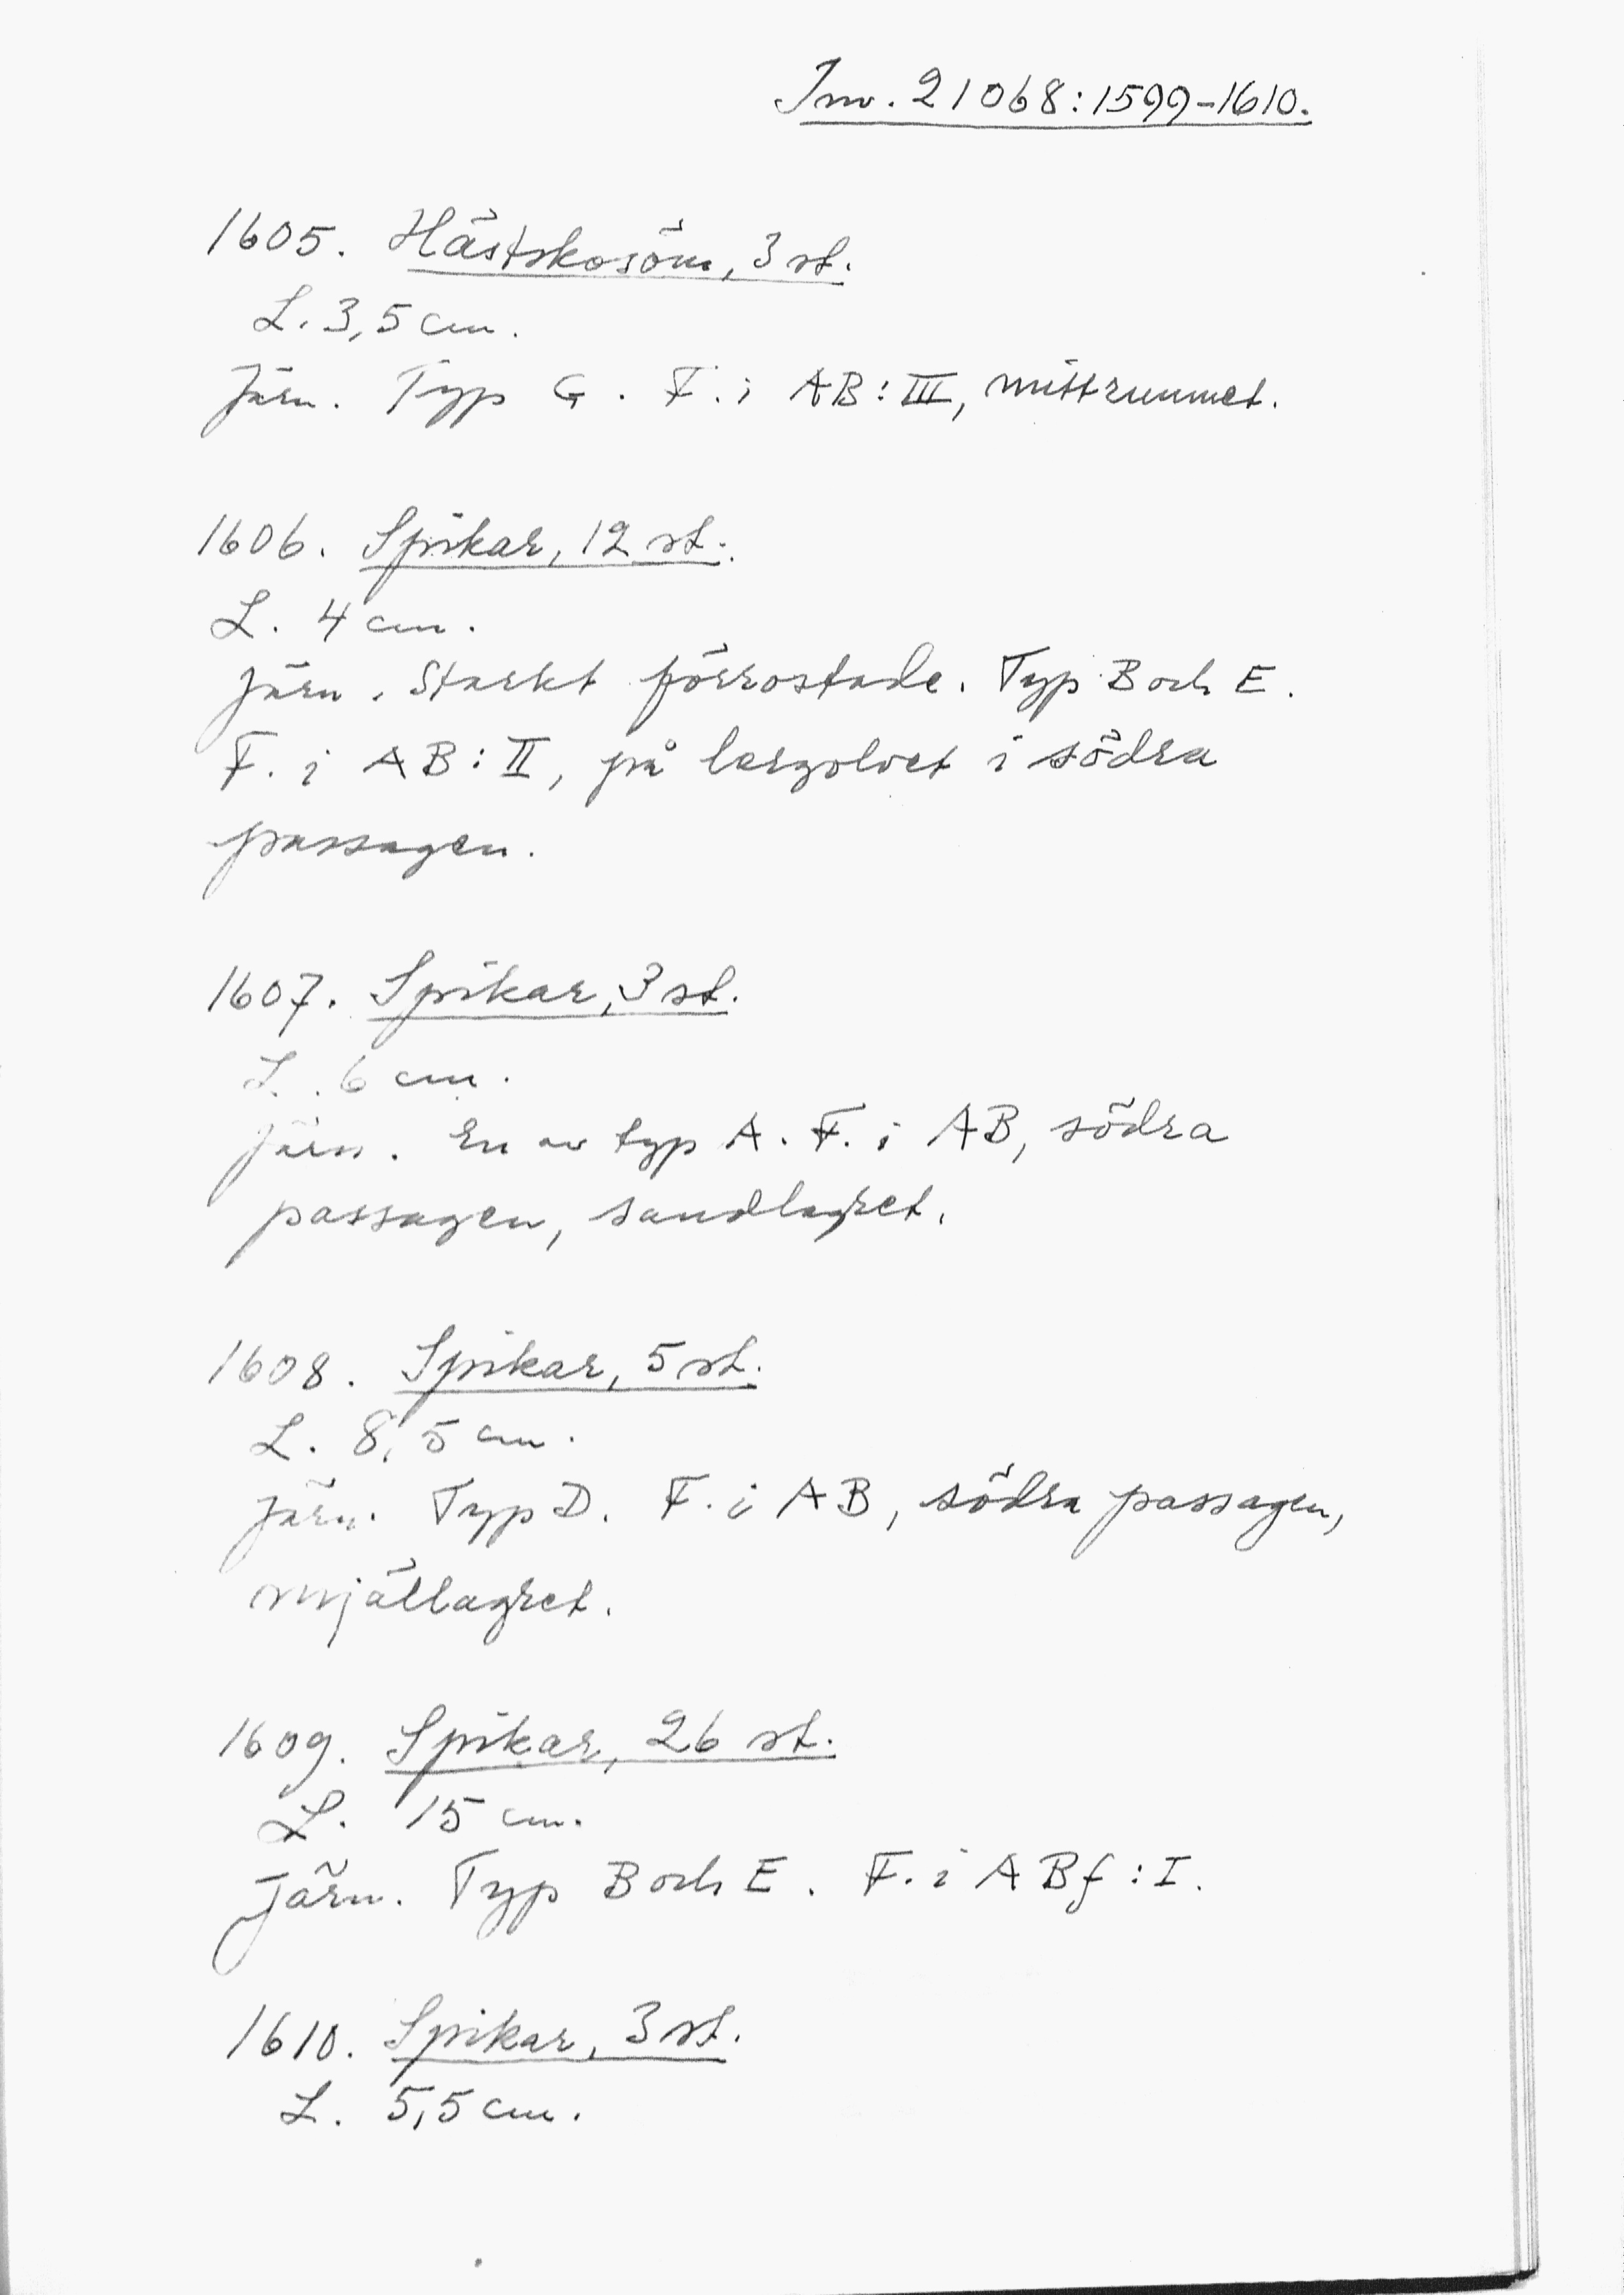 Inv. 21068:1599-1610.
1605. Hästskosöm, 3 st.
L. 3,5 cm.
Järn. Typ G. F. i AB:III, mittrummet.
1606. Spikar, 12 st.
L. 4 cm.
Järn. Starkt förrostade. Typ B och E.
F. i AB:II, på lergolvet i södra
passagen.
1607. Spikar, 3 st.
L. 6 cm.
Järn. En av typ A. F. i AB, södra
passagen, sandlagret.
1608. Spikar, 5 st.
L. 8,5 cm.
Järn. Typ D. F. i AB, södra passagen,
mjällagret.
1609. Spikar, 26 st.
L. 15 cm.
Järn. Typ B och E. F. i ABf:I.
1610. Spikar, 3 st.
L. 5,5 cm.